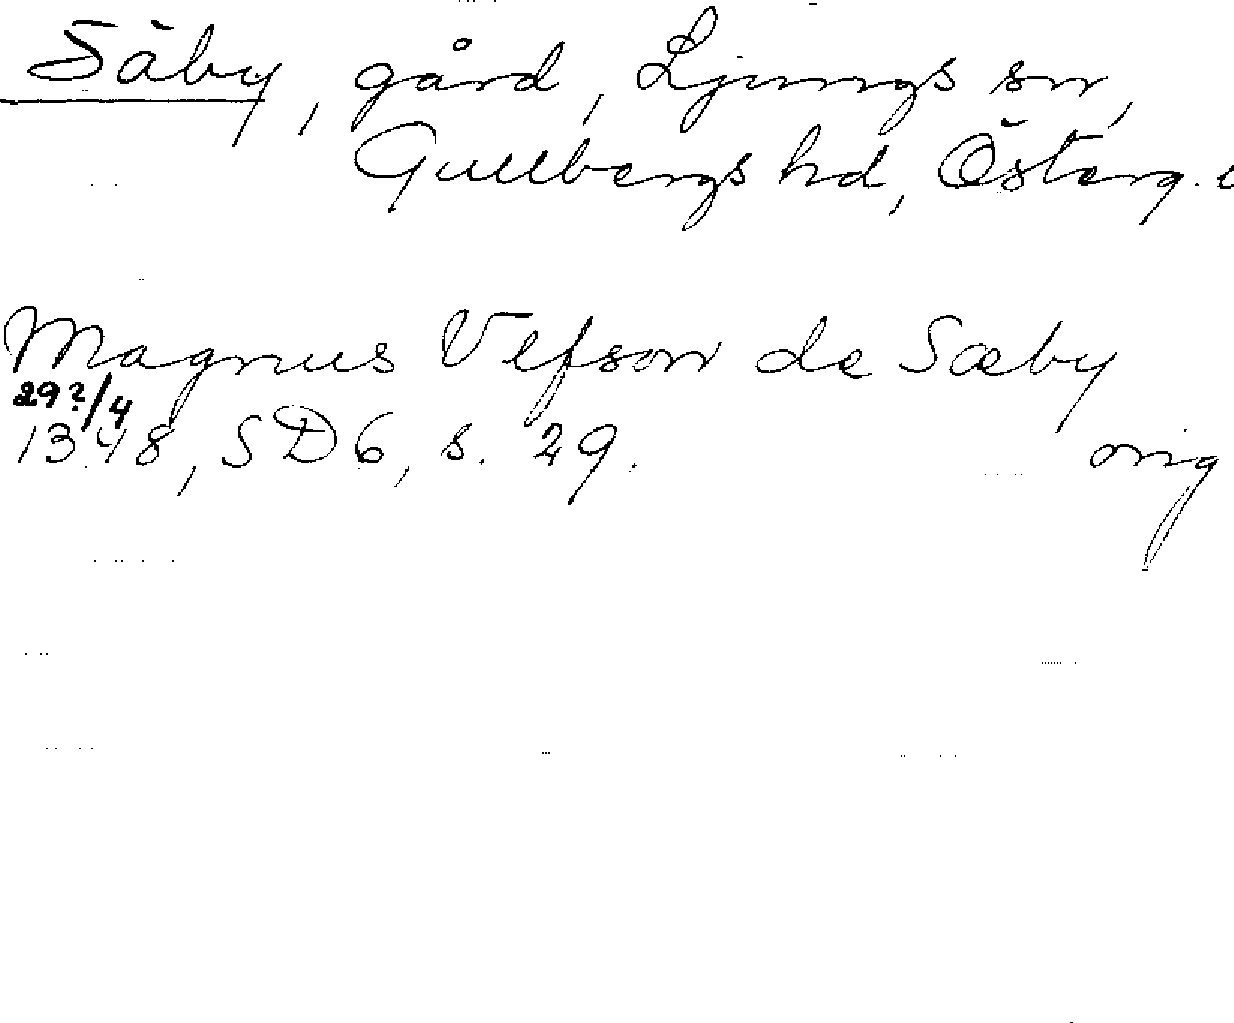 Säby, gård, Ljungs sn,
Gullbergs hd, Österg.
Magnus Vlfson de Sæby
29?/4
1348, SD6, s. 29. orig